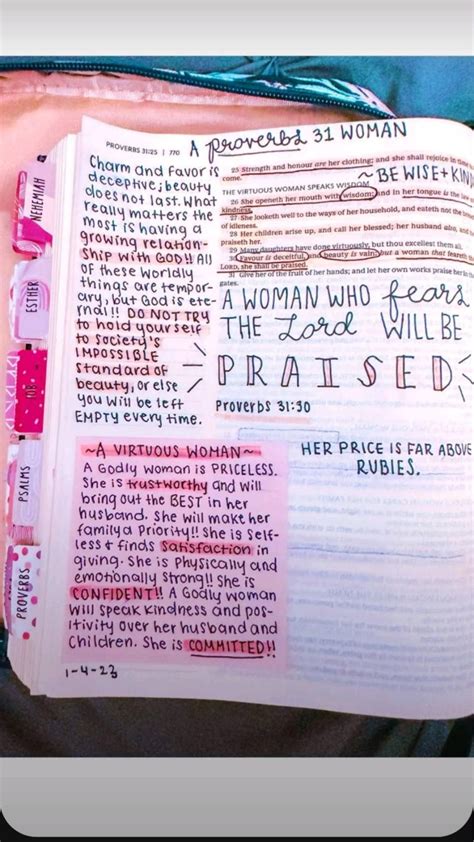 PROVERBS 31:25 | 770
A Proverbs 31 WOMAN
25 Strength and honour are her clothing; and she shall rejoice in
come.
~ BE WISE + KIND
THE VIRTUOUS WOMAN SPEAKS WISDOM
26 She openeth her mouth with wisdom; and in her tongue is the
kindness.
27 She looketh well to the ways of her household, and eateth not the
of idleness.
28 Her children arise up, and call her blessed; her husband also, and
praiseth her.
29 Many daughters have done virtuously, but thou excellest them all.
30 Favour is deceitful, and beauty is vain: but a woman that feareth
LORD, she shall be praised.
31 Give her of the fruit of her hands; and let her own works praise her in
gates.
Charm and Favor is
deceptive; beauty
does not last. What
really matters the
most is having a
growing relation-
ship with GOD!! All
of these worldly
things are tempor-
ary, but God is ete-
rnal!! DO NOT TRY
to hold yourself
to society's
IMPOSSIBLE
standard of
beauty, or else
you will be left
EMPTY every time.
A WOMAN WHO fears
THE Lord WILL BE
PRAISED
Proverbs 31:30
HER PRICE IS FAR ABOVE
RUBIES.
~A VIRTUOUS WOMAN~
A Godly woman is PRICELESS.
She is trustworthy and will
bring out the BEST in her
husband. She will make her
family a Priority!! She is Self-
less & finds Satisfaction in
giving. She is Physically and
emotionally Strong!! She is
CONFIDENT!! A Godly woman
will speak kindness and pos-
itivity over her husband and
Children. She is COMMITTED!!
1-4-23
NEHEMIAH
ESTHER
JOB
PSALMS
PROVERBS